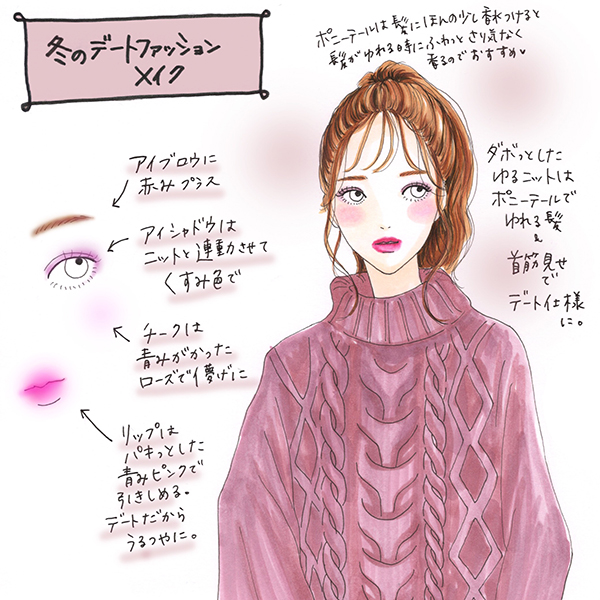 冬のデートファッション
メイク
ポニーテールは髪にほんの少し香水つけると
髪がゆれる時にふわっとさり気なく
香るのでおすすめ♥
アイブロウに
赤みプラス
アイシャドウは
ニットと連動させて
くすみ色で
チークは
青みがかった
ローズで儚げに
リップは
パキっとした
青みピンクで
引きしめる。
デートだから
うるつやに。
ダボっとした
ゆるニットは
ポニーテールで
ゆれる髪
&
首筋見せ
で
デート仕様
に。